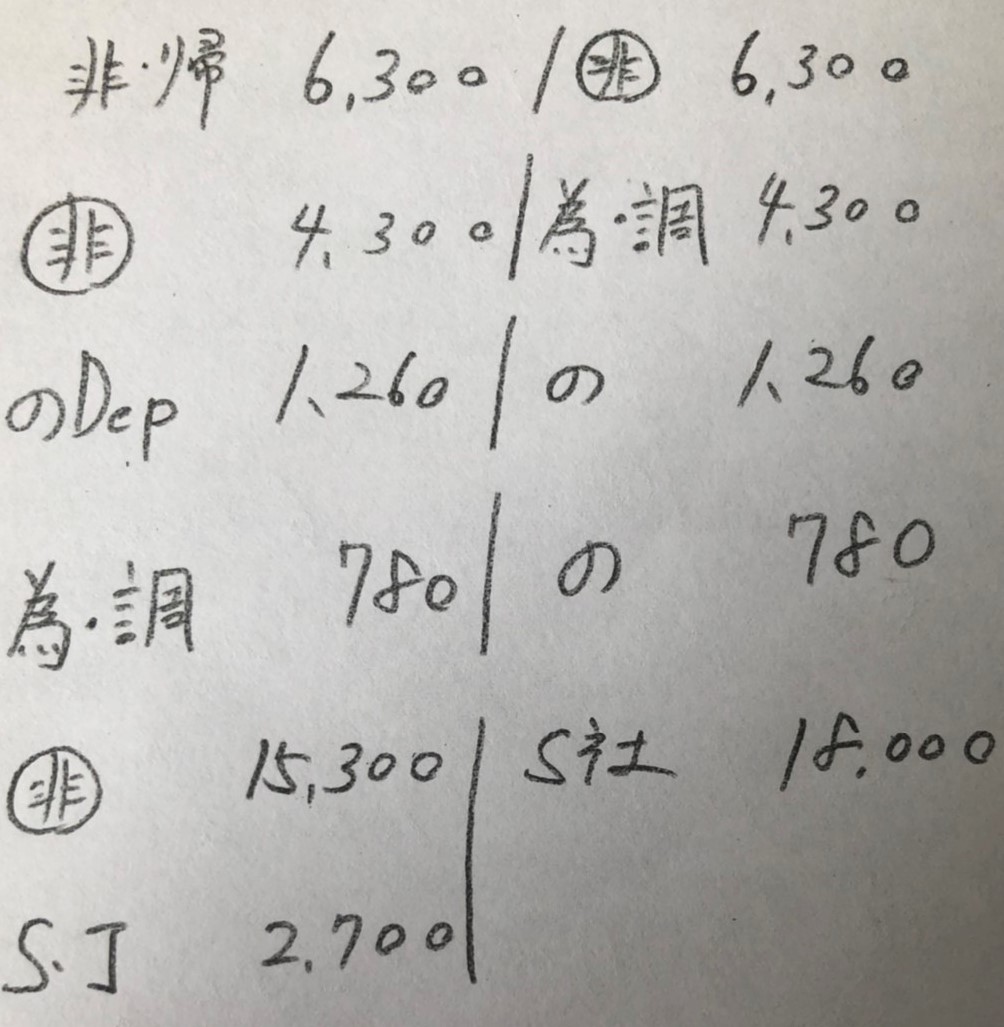 非・帰 6,300 / �非 6,300
�非 4,300 / 為・調 4,300
のDep 1,260 / の 1,260
為・調 780 / の 780
�非 15,300 / S社 18,000
S・J 2,700